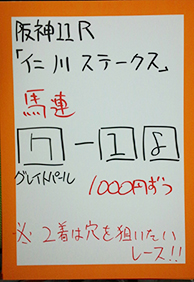 阪神11R
「仁川ステークス」
馬連
7 - 1 8
グレイトパール
1000円ずつ
※2着は穴を狙いたい
レース!!